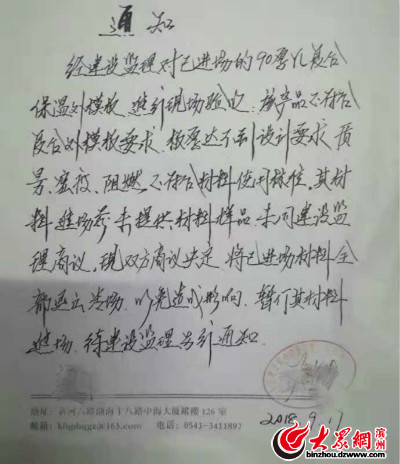 通知
经建设监理对已进场的90厚YL复合
保温外模板进行现场验收，该产品不符合
复合外模板要求，板厚达不到设计要求，质
量、密度、阻燃、不符合材料使用标准，其材
料进场前未提供材料样品未同建设监
理商议，现双方商议决定，将已进场材料全
部退出卖场，以免造成影响，暂停其材料
进场，待建设监理另行通知。
地址：黄河六路渤海十八路中海大厦裙楼126室
邮箱：@163.com 电话：0543-3411897
2018.9.17
大众网 滨州
binzhou.dzwww.com